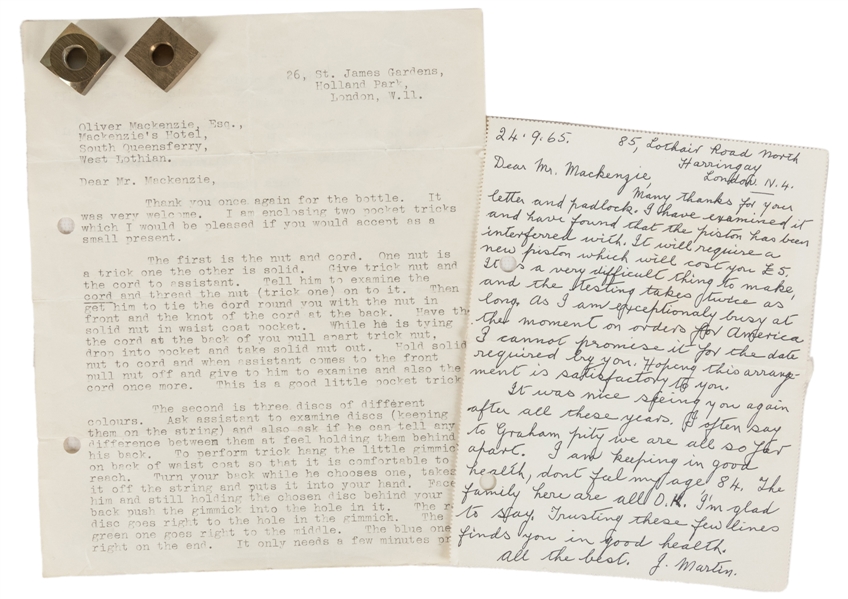 26, St. James Gardens,
Holland Park,
London, W.11.
Oliver Mackenzie, Esq.,
Mackenzie's Hotel,
South Queensferry,
West Lothian.
Dear Mr. Mackenzie,
Thank you once again for the bottle. It
was very welcome. I am enclosing two pocket tricks
which I would be pleased if you would accept as a
small present.
The first is the nut and cord. One nut is
a trick one the other is solid. Give trick nut and
the cord to assistant. Tell him to examine the
cord and thread the nut (trick one) on to it. Then
get him to tie the cord round you with the nut in
front and the knot of the cord at the back. Have the
solid nut in waist coat pocket. While he is tying
the cord at the back of you pull apart trick nut.
drop into pocket and take solid nut out. Hold solid
nut to cord and when assistant comes to the front
pull nut off and give to him to examine and also the
cord once more. This is a good little pocket trick
The second is three discs of different
colours. Ask assistant to examine discs (keeping
them on the string) and also ask if he can tell any
difference between them at feel holding them behind
his back. To perform trick hang the little gimmic
on back of waist coat so that it is comfortable to
reach. Turn your back while he chooses one, takes
it off the string and puts it into your hand. Face
him and still holding the chosen disc behind your
back push the gimmick into the hole in it. The r
disc goes right to the hole in the gimmick. The
green one goes right to the middle. The blue one
right on the end. It only needs a few minutes pr
24.9.65. 85, Lothair Road North
Harringay
London N.4.
Dear Mr. Mackenzie,
Many thanks for your
letter and padlock. I have examined it
and have found that the piston has been
interferred with. It will require a
new piston which will cost you £5.
It is a very difficult thing to make,
and the testing takes twice as
long. As I am exceptionaly busy at
the moment on orders for America
I cannot promise it for the date
required by you. Hoping this arrange-
ment is satisfactory to you.
It was nice seeing you again
after all these years. I often say
to Graham pity we are all so far
apart. I am keeping in good
health, dont feel my age 84. The
family here are all O.K. I'm glad
to say. Trusting these few lines
finds you in good health.
All the best. J. Martin.